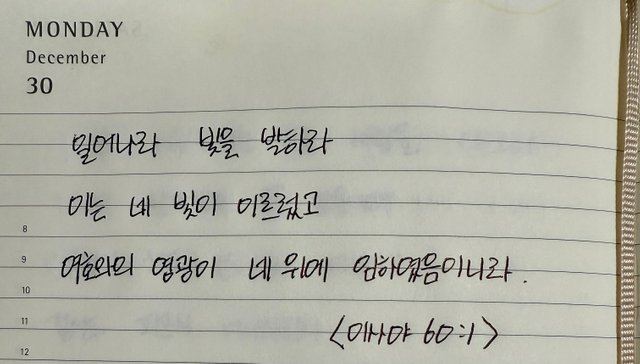 MONDAY
December
30
일어나라 빛을 발하라
이는 네 빛이 이르렀고
8
9
여호와의 영광이 네 위에 임하였음이니라.
10
11
<이사야 60:1>
12